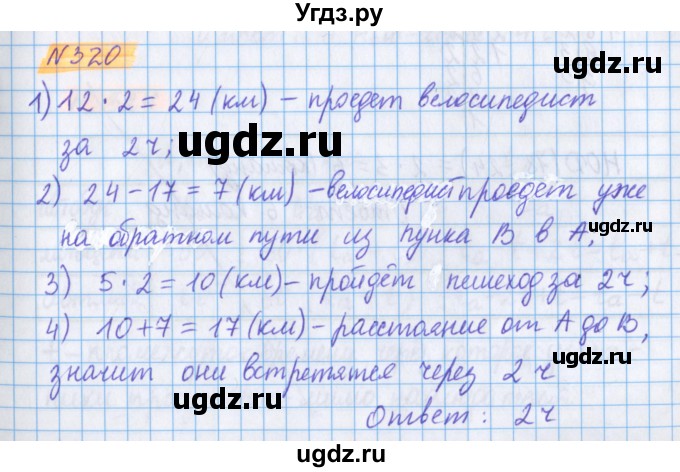 Угдз.ру
N320
1) 12 · 2 = 24 (км) – проедет велосипедист
за 2ч;
2) 24 – 17 = 7 (км) – велосипедист проедет уже
на обратном пути из пунка В в А,
3) 5 · 2 = 10 (км) – пройдёт пешеход за 2ч;
4) 10 + 7 = 17 (км) – расстояние от А до В,
значит они встретятся через 2ч
Ответ: 2ч
ugdz.ru
ugdz.ru
ugdz.ru
ugdz.ru
ugdz.ru
ugdz.ru